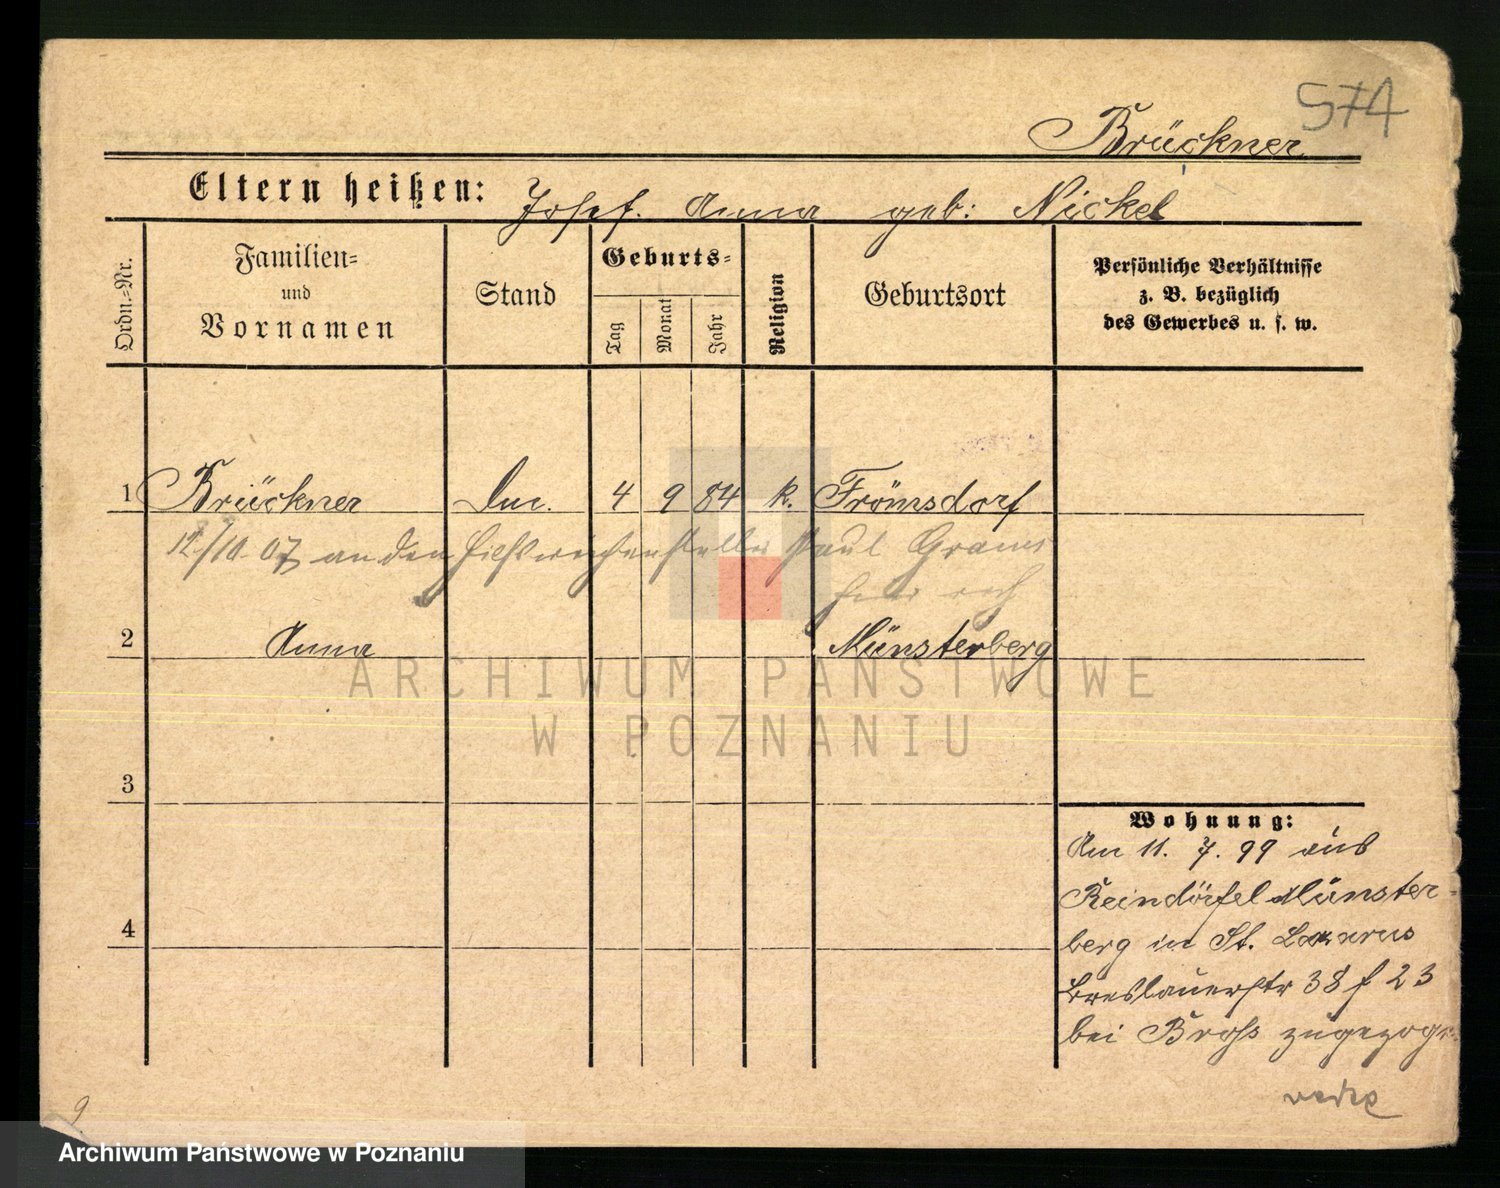 574
Brückner
Eltern heißen: Josef. Anna geb: Nickel
Ordn.=Nr.
Familien=
und
Vornamen
Stand
Geburts=
Tag
Monat
Jahr
Religion
Geburtsort
Persönliche Verhältnisse
z. B. bezüglich
des Gewerbes u. s. w.
1 Brückner 4 9 84 k. Frömsdorf
12/10. 07 an den Hilfsweichensteller Paul Grams
2 Anna Münsterberg
ARCHIWUM PAŃSTWOWE
W POZNANIU
3
4
Wohnung:
Am 11. 7. 99 aus
Reindörfel Münster-
berg in St. Lazarus
Breslauerstr 38 f 23
bei Bross
9
Archiwum Państwowe w Poznaniu